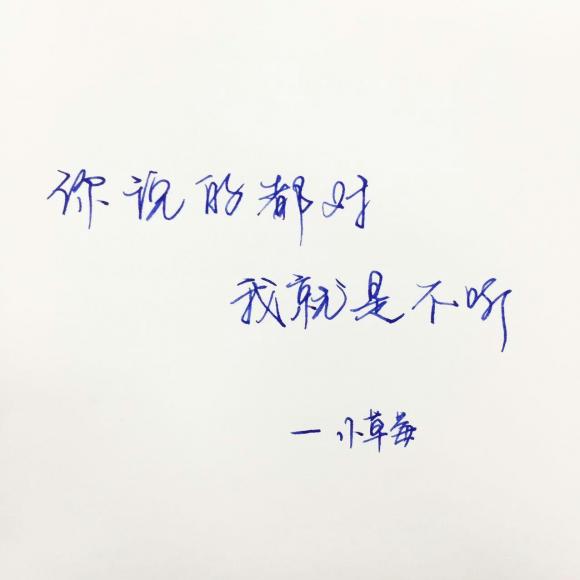 你说的都对
我就是不听
一小草莓